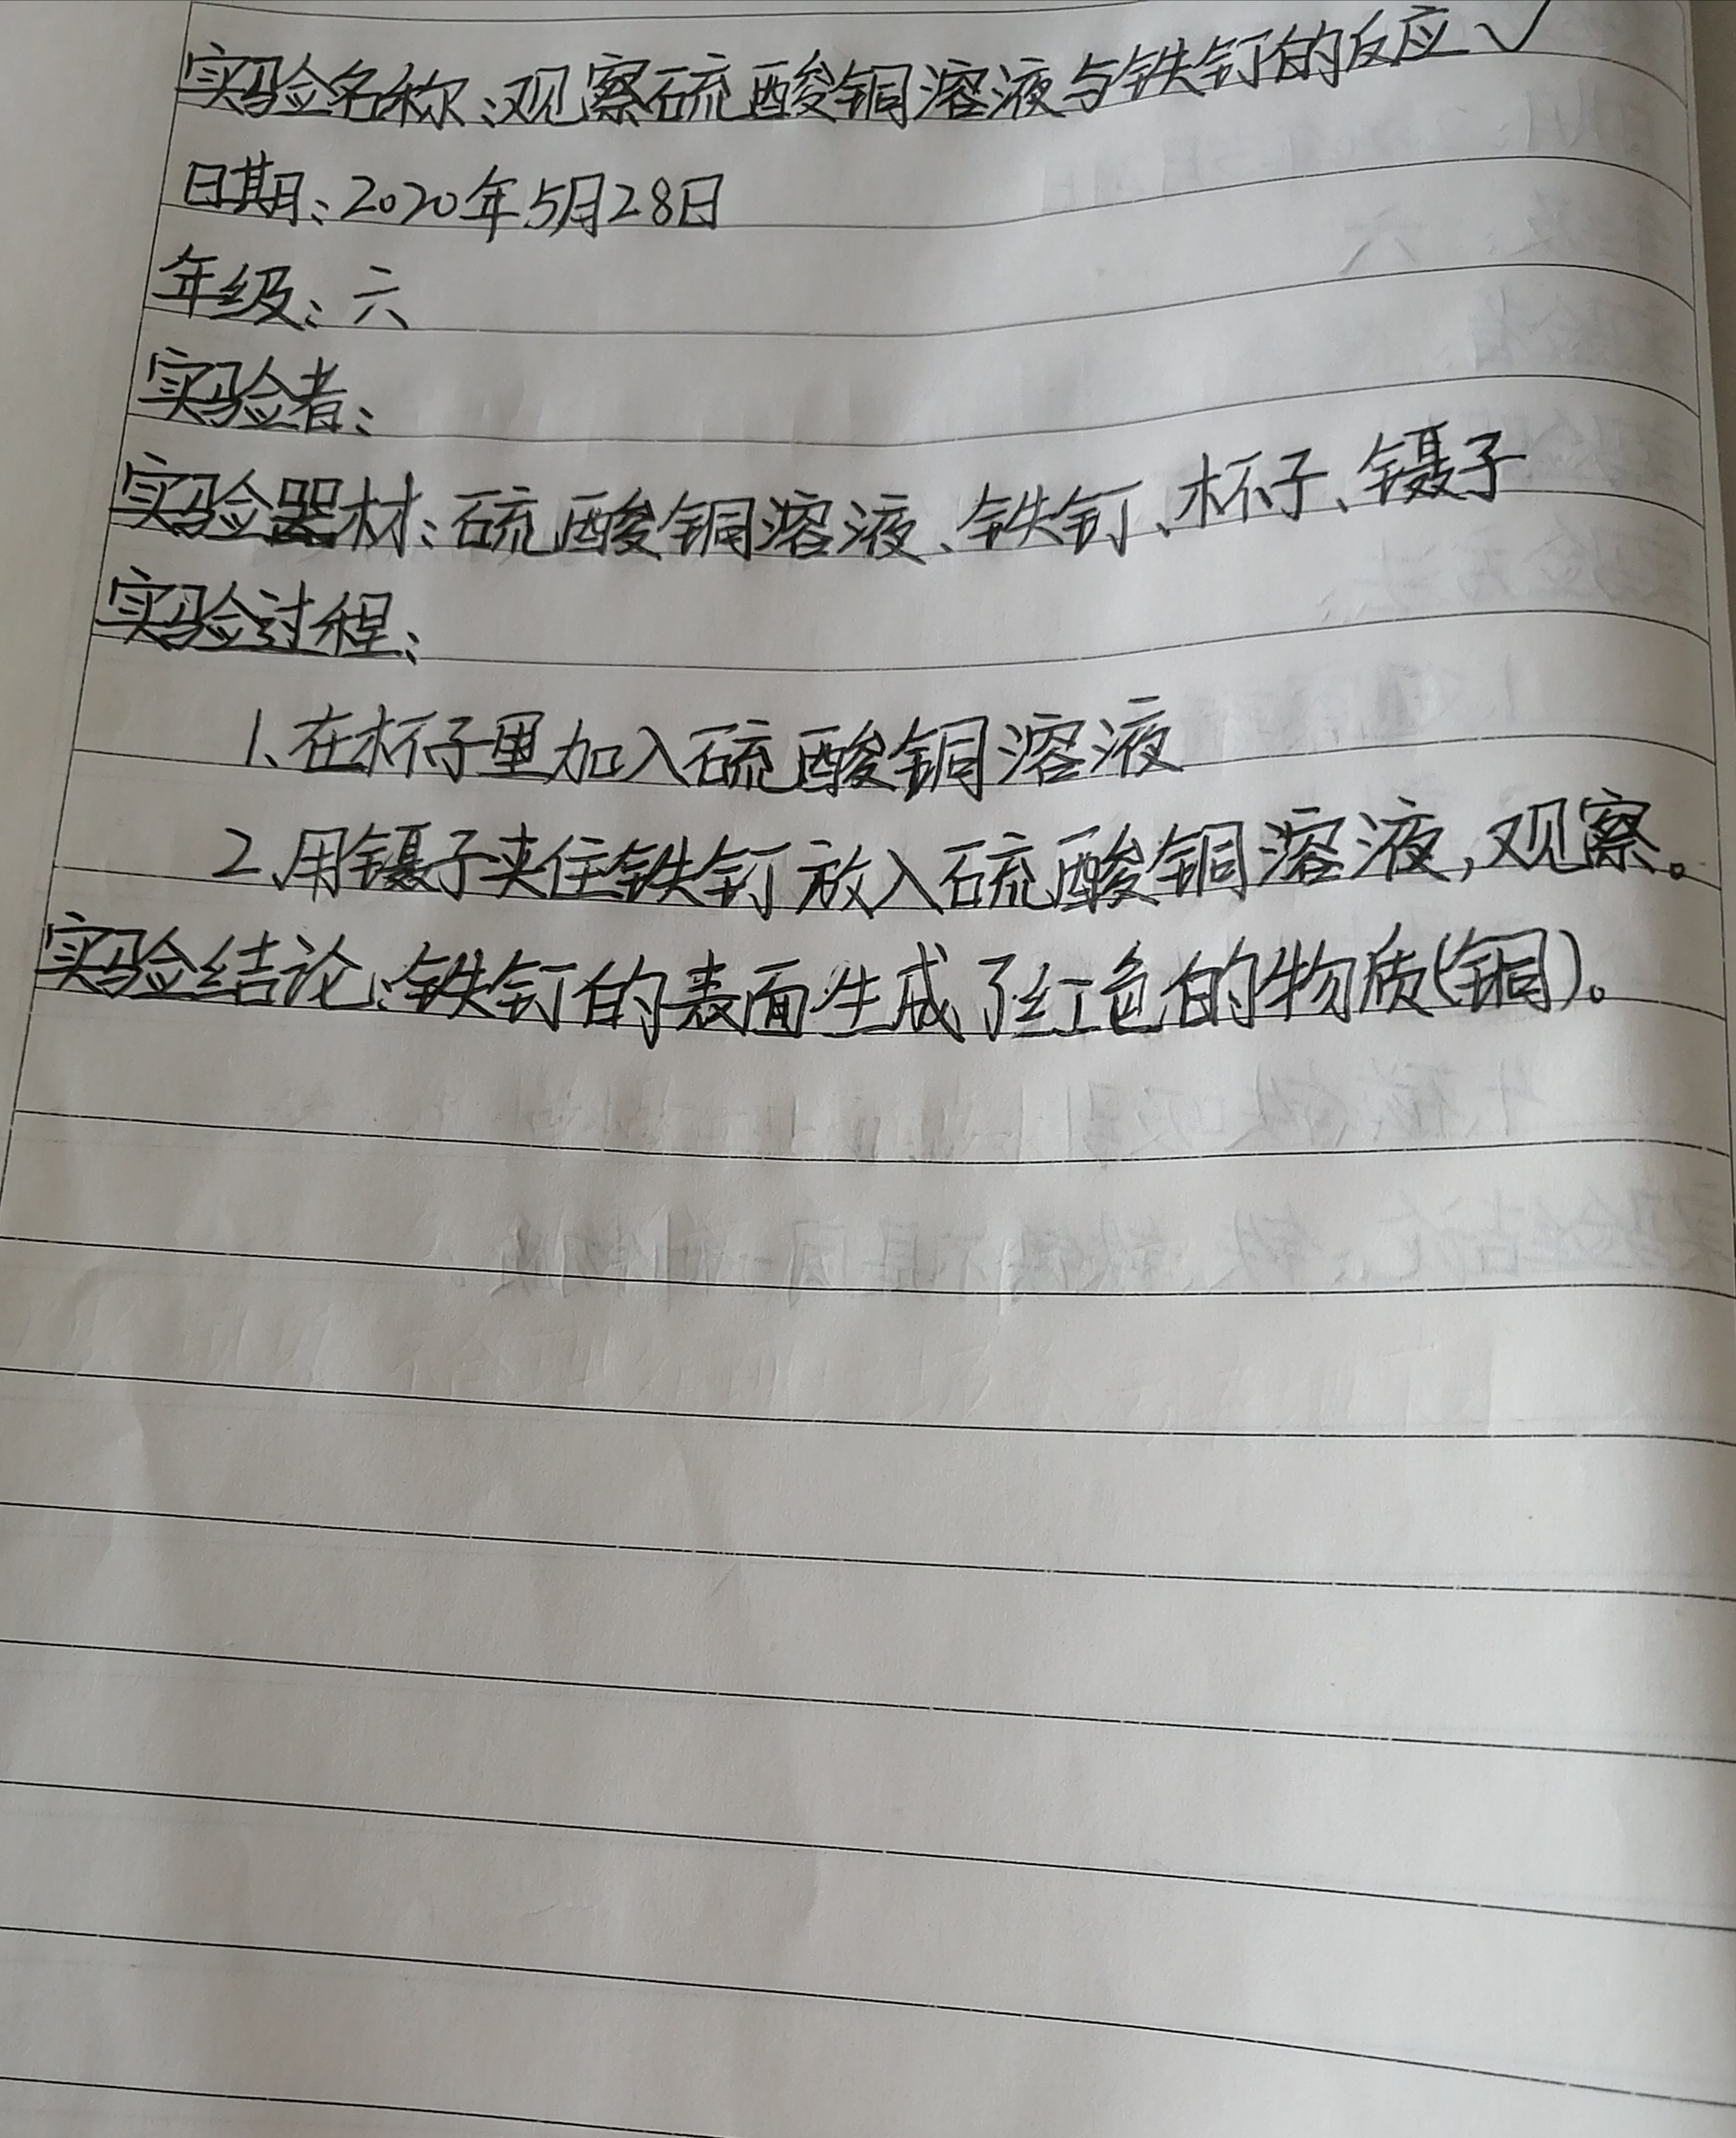 实验名称:观察硫酸铜溶液与铁钉的反应✓
日期:2020年5月28日
年级:六
实验者:
实验器材:硫酸铜溶液、铁钉、杯子、镊子
实验过程:
1、在杯子里加入硫酸铜溶液
2、用镊子夹住铁钉放入硫酸铜溶液,观察。
实验结论:铁钉的表面生成了红色的物质(铜)。